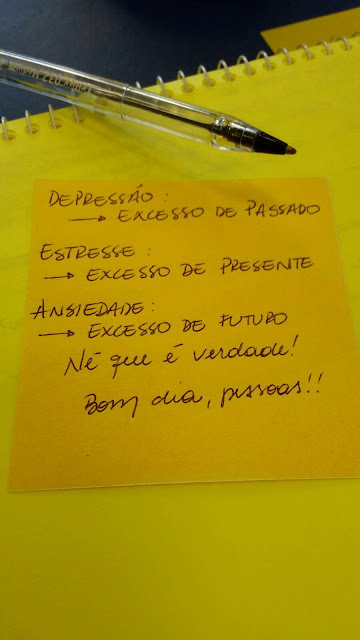 DEPRESSÃO:
→ EXCESSO DE PASSADO
ESTRESSE:
→ EXCESSO DE PRESENTE
ANSIEDADE:
→ EXCESSO DE FUTURO
Né que é verdade!
Bom dia, pessoas!!